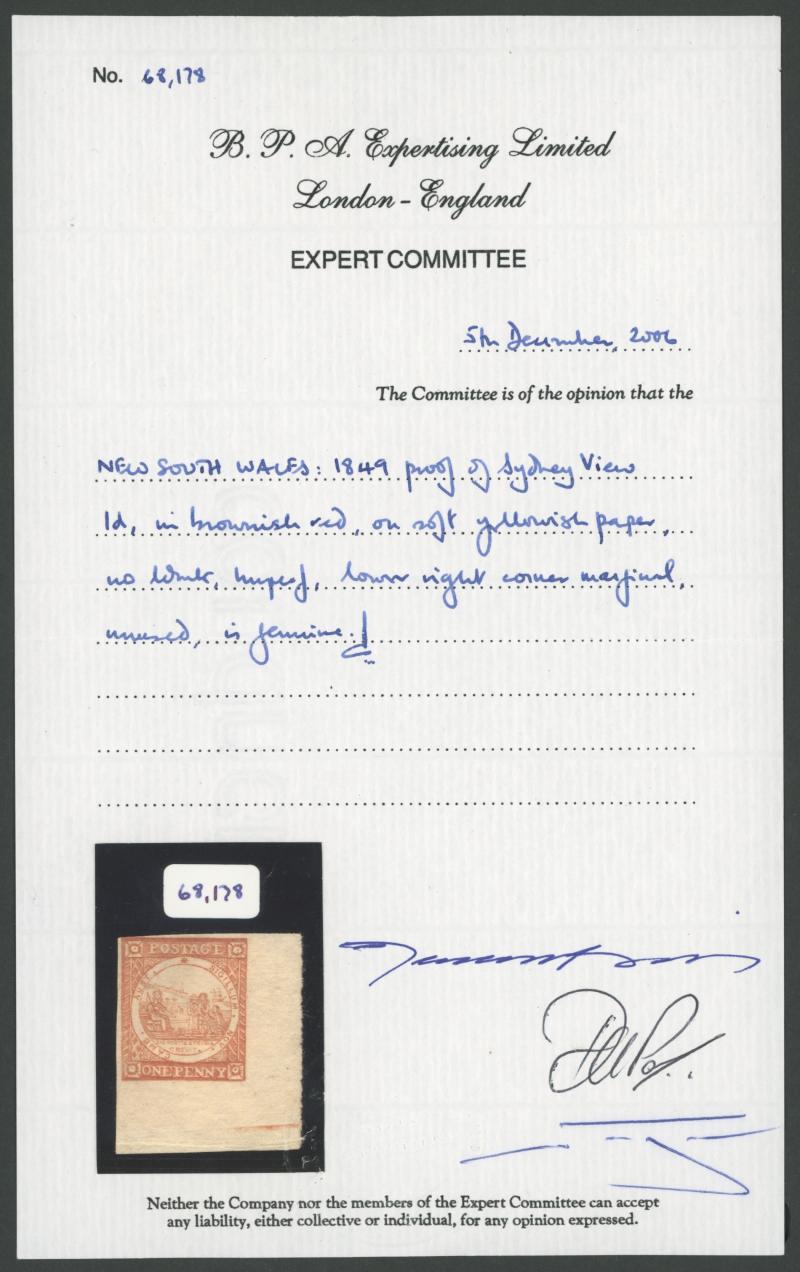 No. 68,178
B. P. A. Expertising Limited
London - England
EXPERT COMMITTEE
5th December, 2006
The Committee is of the opinion that the
NEW SOUTH WALES: 1849 proof of Sydney View
1d, in brownish red, on soft yellowish paper,
no wmk, imperf, lower right corner marginal,
unused, is genuine.
68,178
POSTAGE
SIGILLUM
NOV
CAMB
ONE PENNY
Neither the Company nor the members of the Expert Committee can accept
any liability, either collective or individual, for any opinion expressed.